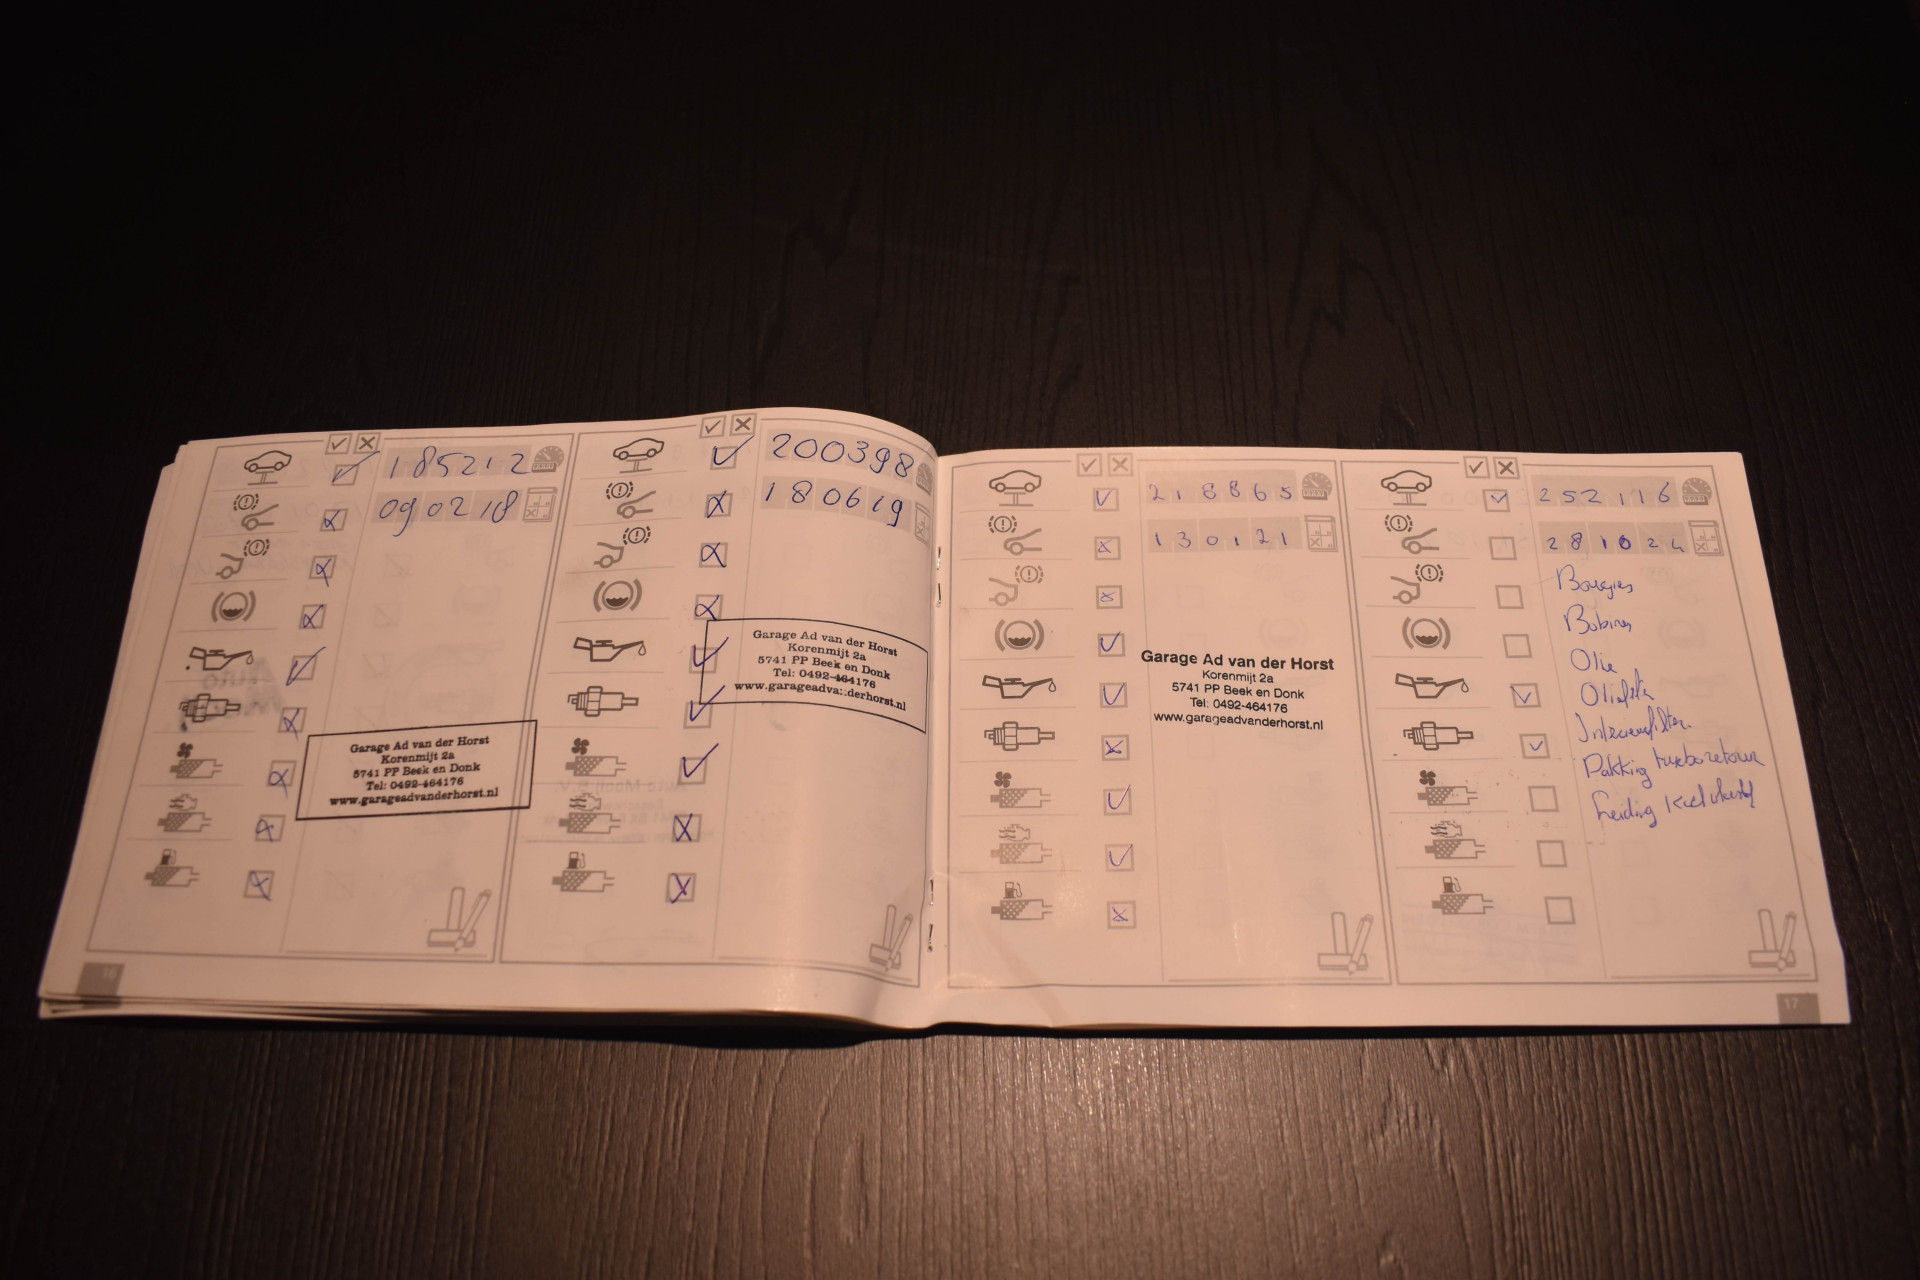 185212
090218
Garage Ad van der Horst
Korenmijt 2a
5741 PP Beek en Donk
Tel: 0492-464176
www.garageadvanderhorst.nl
16
200398
180619
Garage Ad van der Horst
Korenmijt 2a
5741 PP Beek en Donk
Tel: 0492-464176
www.garageadvanderhorst.nl
218865
130121
Garage Ad van der Horst
Korenmijt 2a
5741 PP Beek en Donk
Tel: 0492-464176
www.garageadvanderhorst.nl
252116
281024
Bougies
Bobines
Olie
Oliefilter
Interieurfilter
Pakking turboretour
Leiding
17